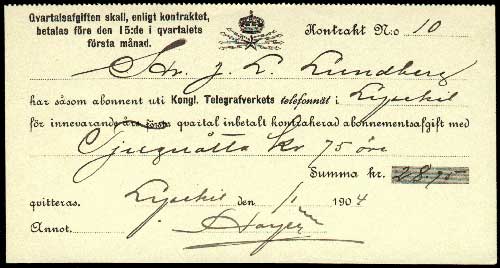 Qvartalsafgiften skall, enligt kontraktet,
betalas före den 15:de i qvartalets
första månad.
Kontrakt N:o 10
Hr. J. L. Lundberg
har såsom abonnent uti Kongl. Telegrafverkets telefonnät i Lysekil
för innevarande års första qvartal inbetalt kontraherad abonnementsafgift med
Tjuguåtta kr 75 öre
Summa kr. 28.75
qvitteras. Lysekil den 1/ 1904
Annot.